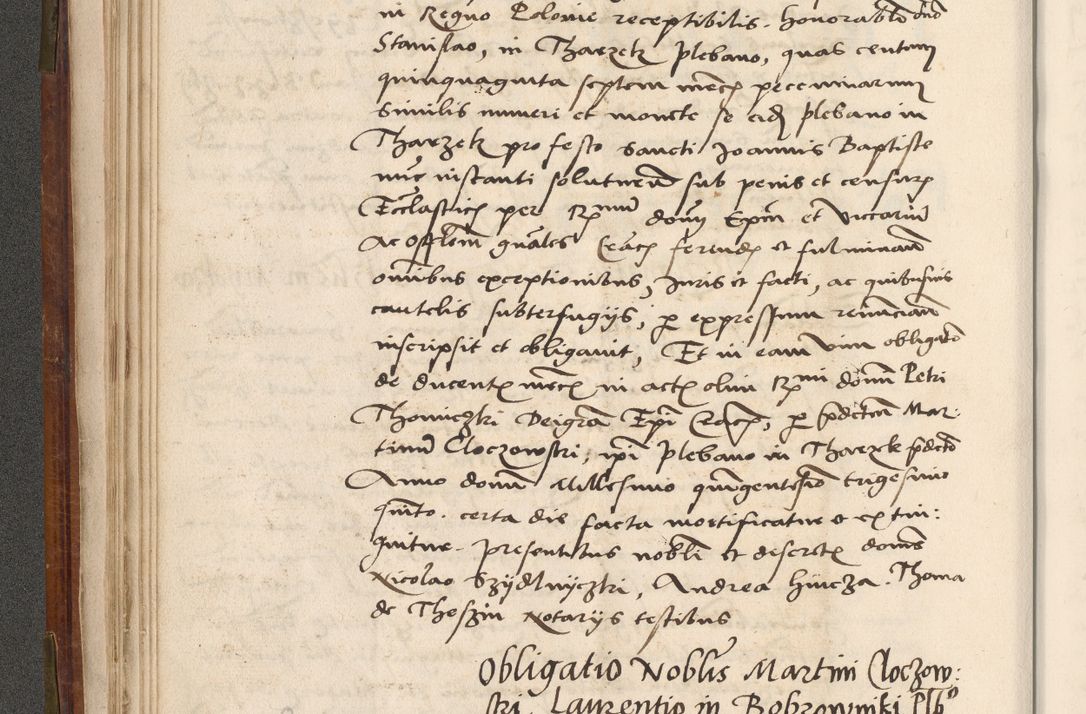 in Regno Polonie receptibilis. honorabli dno
Stanislao, in Tharzek plebano, quas centum
quinquaginta septem mrcs pecuniarum
similis numeri et monete se eidem plebano in
Tharzek pro festo Sancti Joannis Baptiste
nunc instanti soluturum sub penis et censuris
Ecclasticis per Rmum donum Epm et viccarium
ac offlem gnales Cracs ferendis et fulminandis
omibus exceptionibus, Juris et facti, ac quibusuis
cautelis subterfugijs, per expressum renuncians
inscripsit et obligauit, Et in eam vim obligatio
de ducentis mrcs in actis olim Rmi domi Petri
Thomiczki Dei gra Epi Cracs, per pdictum Mar-
tinum Cloczowski, ipsi plebano in Tharzek pdicto
Anno domi Millesimo quingentesimo trigesimo
quinto. certa die facta mortificatur et extin:
guitur. presentibus nobli et discretis domis
Nicolao Szydlowyczki, Andrea hincza. Thoma
de Theszin Notarijs testibus
Obligatio Noblis Martini Cloczow:
ski, Laurentio in Bobrowniki Plbo